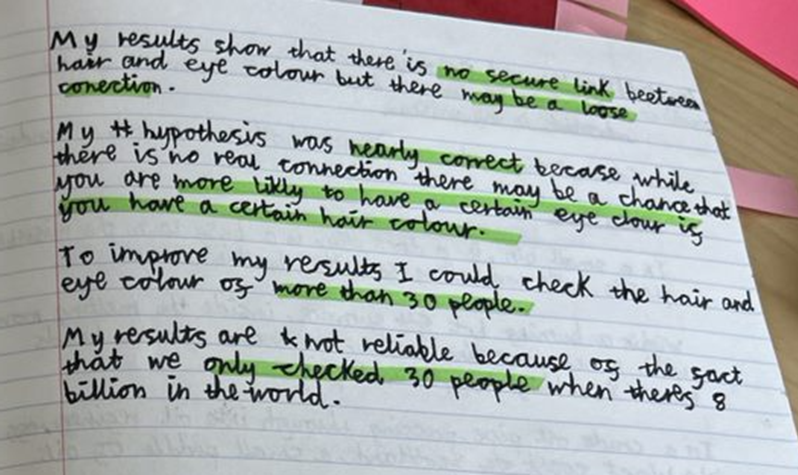 My results show that there is no secure link beetween
hair and eye colour but there may be a loose
conection.
My hypothesis was nearly correct becase while
there is no real connection there may be a chance that
you are more likly to have a certain eye clour if
you have a certain hair colour.
To improve my results I could check the hair and
eye colour of more than 30 people.
My results are not reliable because of the fact
that we only checked 30 people when theres 8
billion in the world.